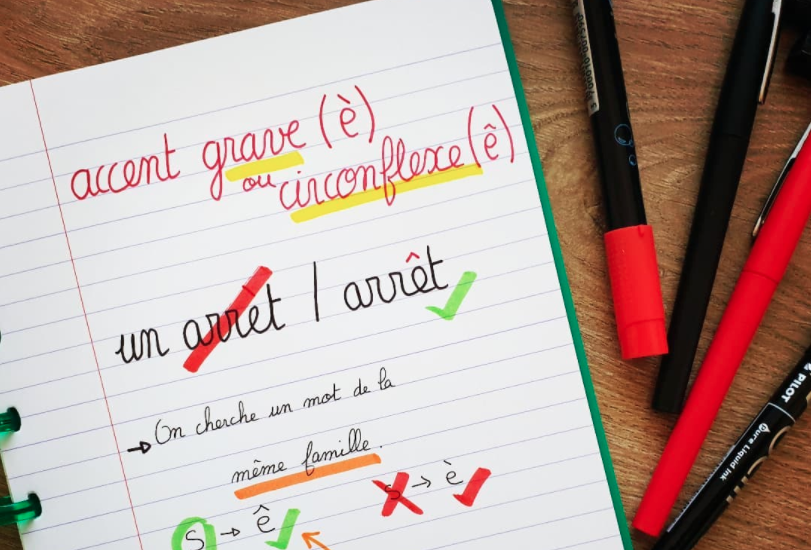 accent grave (è)
ou circonflexe (ê)
un arret / arrêt
→ On cherche un mot de la
même famille.
s → ê
s → è
PILOT
Pure Liquid Ink